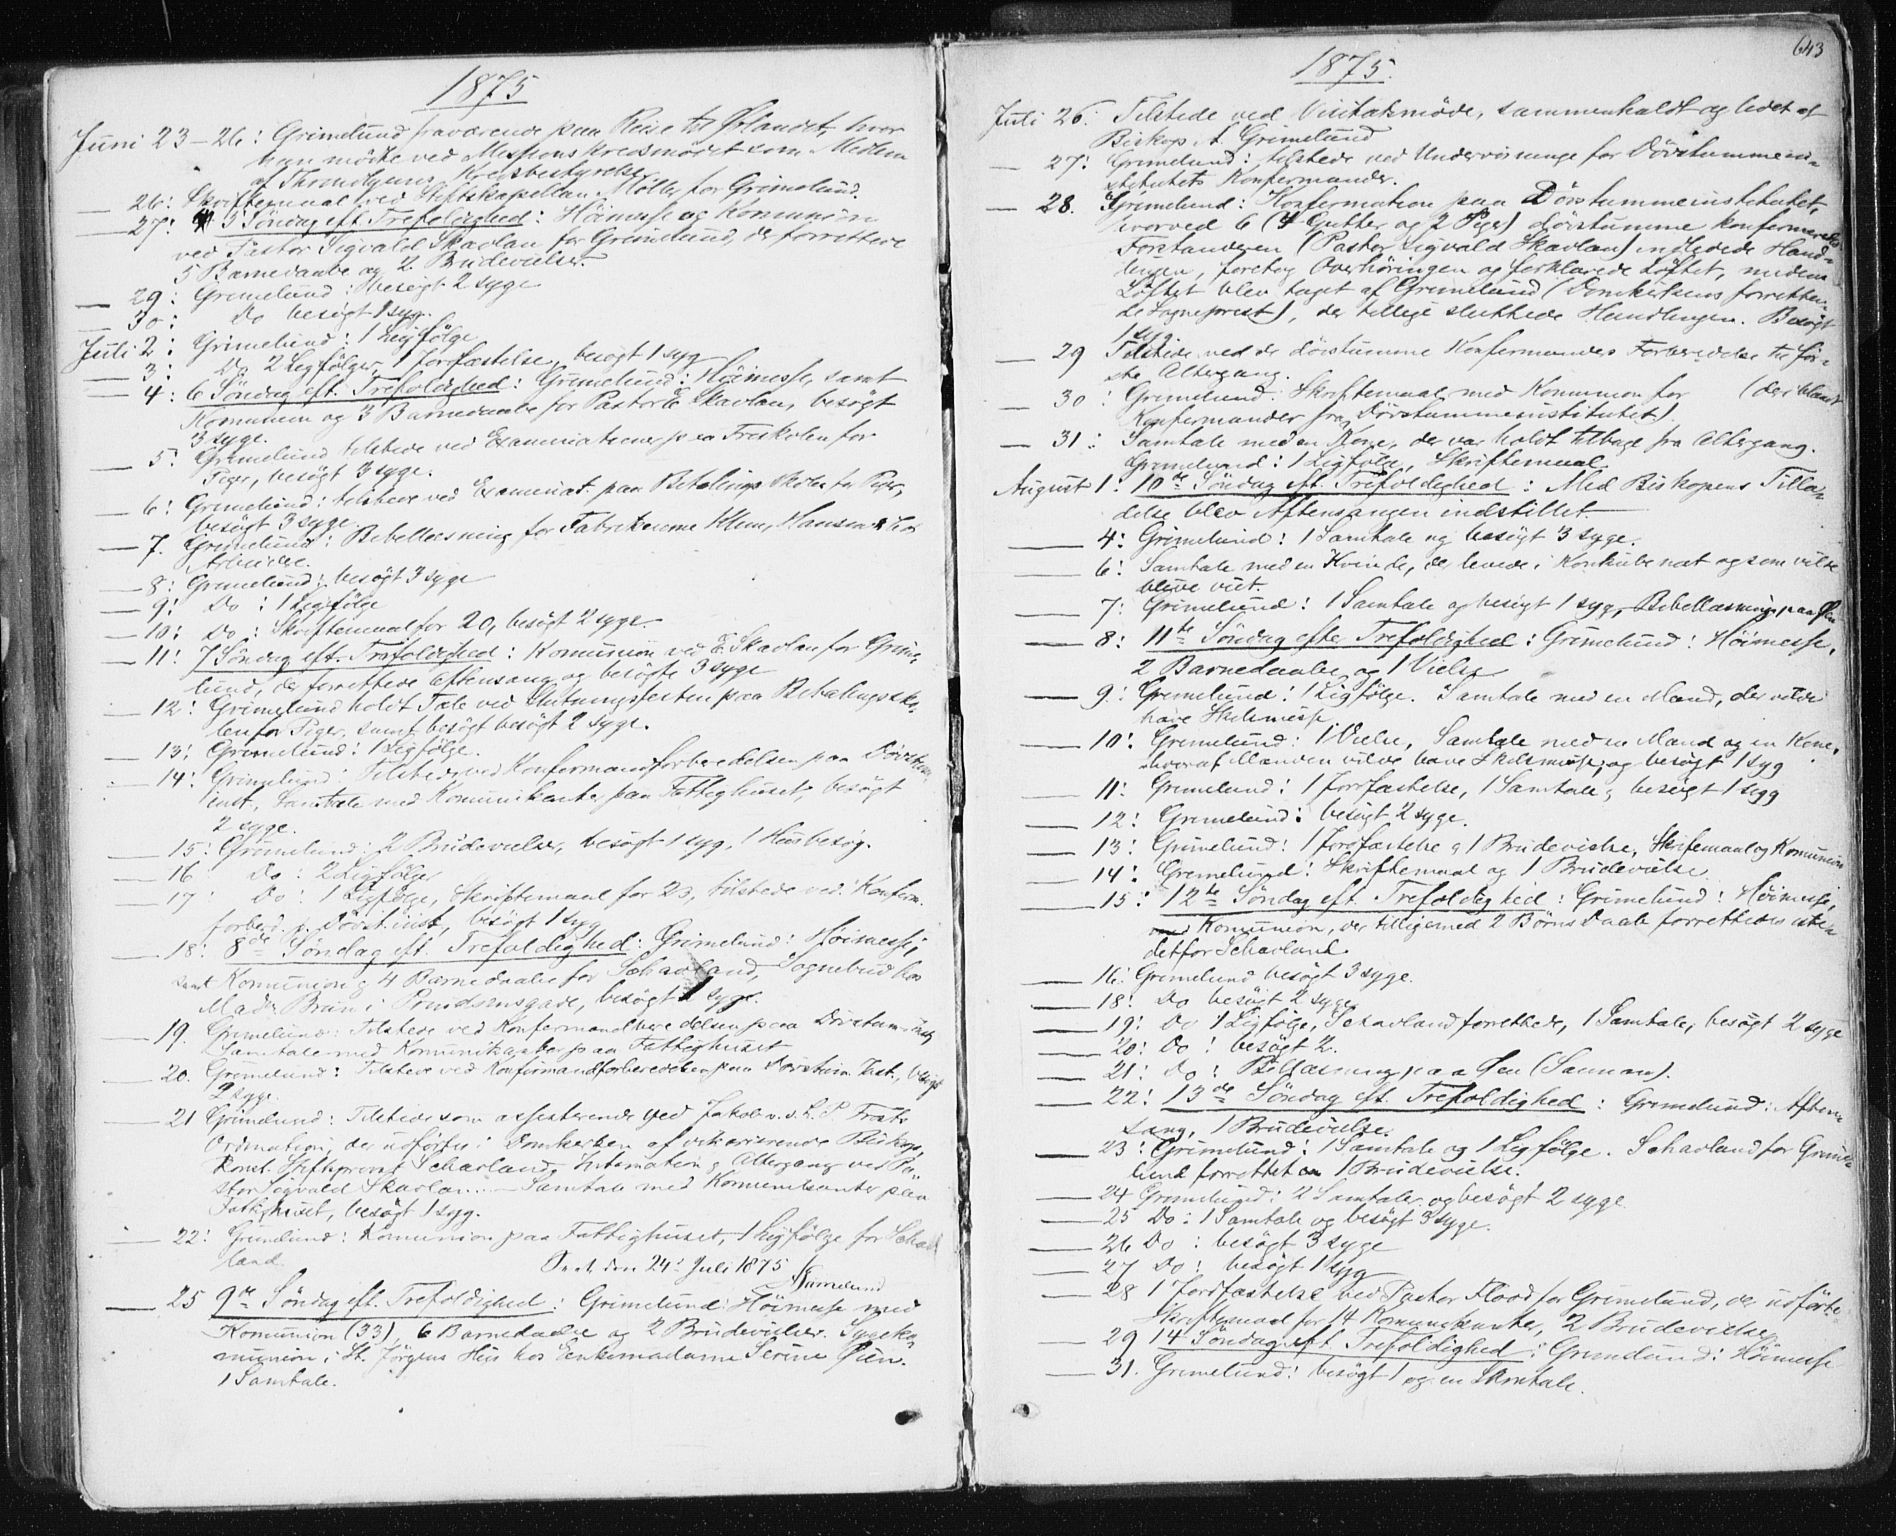 1875
Juni 23-26: Grimelund fraværende paa Reise til Ørlandet, hvor
han mødte ved Missionskredsmødet som Medlem
af Throndhjems Kredsbestyrelse.
— 26: Skriftemaal ved Stiftskapellan Møller for Grimelund.
— 27: 5 Søndag eft. Trefoldighed: Höimesse og Komunion
ved Pastor Sigvald Skavlan for Grimelund, der forrettede
5 Barnedaabe og 2 Brudevielser.
— 29: Grimelund: besögt 2 syge
— 30: Do besögt 1 syg.
Juli 2: Grimelund: 1 Ligfölge
— 3: Do 2 Ligfölger, 1 Jordfæstelse, besögt 1 syg
— 4: 6 Söndag eft. Trefoldighed: Grimelund: Höimesse, samt
Komunion og 3 Barnedaabe for Pastor Skavlan, besögt
3 syge.
— 5: Grimelund tilstede ved Examinationer paa Friskolen for
Piger, besögt 3 syge.
— 6: Grimelund: tilstede ved Examinat. paa Betalings Skolen for Piger,
besögt 3 syge
— 7. Grimelund: Bibellæsning for Fabrikerne Hansens
Arbeidere.
— 8: Grimelund: besögt 3 syge
— 9: Do: 1 Ligfölge
— 10: Do: Skriftemaal for 20, besögt 2 syge.
— 11: 7 Söndag eft. Trefoldighed: Komunion ved S. Skavlan for Grime-
lund, der forrettede Aftensang og besögte 3 syge
— 12: Grimelund holdt Tale ved Slutningsfesten paa Betalingssko-
len for Piger, samt besögt besögt 2 syge.
— 13: Grimelund: 1 Ligfölge.
— 14: Grimelund: Tilstede ved Konfirmandforberedelsen paa Dövstum.
inst., Samtale med Komunikanter paa Fattighuset, besögt
2 syge.
— 15: Grimelund: 2 Brudevielser, besögt 1 syg, 1 Husbesög.
— 16 Do: 2 Ligfölger
— 17 Do: 1 Ligfölge, Skriftemaal for 23, tilstede ved Konfirm.
forbered. p. Dövst.inst., besögt 1 syg
— 18: 8de Söndag eft. Trefoldighed: Grimelund: Höimesse,
samt Komunion og 4 Barnedaabe for Schavland, Sognebud hos
Mad. Bruun i Prindsensgade, besögt 1 syge.
— 19. Grimelund: Tilstede ved Konfirmandberedelsen paa Dövstuminst.
Samtale med Komunikanter paa Fattighuset
— 20. Grimelund: Tilstede ved Konfirmandforberedelsen paa Dövstum. Inst., besögt
2 syge.
— 21 Grimelund: Tilstede som assisterende ved Jakob v. d. L. P. Frosts
Ordination, der udförtes i Domkirken af vicarierende Biskop,
Konst. Stiftsprovst Schavland, Intimation og Altergang ved Pa-
stor Sigvald Skavlan. — Samtale med Komunikanter paa
Fattighuset, besögt 1 syg.
— 22: Grimelund: Komunion paa Fattighuset, 1 Ligfölge for Schav-
land.
den 24: Juli 1875
Grimelund
— 25 9de Söndag eft. Trefoldighed: Grimelund: Höimesse med
Komunion (33), 6 Barnedaabe og 2 Brudevielser. Sygeko-
munion i St. Jörgens Hus hos Enkemadame Serine Öien.
1 Samtale.
643
1875.
Juli 26. Tilstede ved Visitatsmöde, sammenkaldt og ledet af
Biskop A Grimelund
— 27: Grimelund: tilstede ved Undervisninge for Dövstummein-
stitutets Konfirmander.
— 28. Grimelund: Konfirmation paa Dövstummeinstitutet,
hvorved 6 (4 Gutter og 2 Piger) dövstumme konfirmeredes
Forstanderen (Pastor Sigvald Skavlan) indledede Hand-
lingen, foretog Overhöringen og forklarede Löftet, medens
Löftet blev taget af Grimelund (Domkirkens forretten-
de Sogneprest), der tillige sluttede Handlingen. Besögt
1 syg.
— 29 Tilstede ved de dövstumme Konfirmanders Forberedelse til för-
ste Altergang.
— 30: Grimelund: Skriftemaal med Komunion for (deriblandt
Konfirmander fra Dövstummeinstitutet).
— 31: Samtale med en Kone, der var holdt tilbage fra Altergang.
Grimelund: 1 Ligfölge, Skriftemaal.
August 1: 10de Söndag eft. Trefoldighed: Med Biskopens Tilla-
delse blev Aftensangen indstillet
— 4: Grimelund: 1 Samtale og besögt 3 syge.
— 6: Samtale med en Kvinde, der levede i Konkubinat og som vilde
blive viet.
— 7: Grimelund: 1 Samtale og besögt 1 syg, Bibellæsning paa Öen
— 8: 11te Söndag efter Trefoldighed: Grimelund: Höimesse,
2 Barnedaabe og 1 Vielse
— 9: Grimelund: 1 Ligfölge. Samtale med en Mand, der vilde
have Skilsmisse
— 10: Grimelund: 1 Vielse, Samtale med en Mand og en Kone,
hvoraf Manden vilde have Skilsmisse, og besögt 1 syg
— 11: Grimelund: 1 Jordfæstelse, 1 Samtale, besögt 1 syg
— 12: Grimelund: besögt 2 syge.
— 13: Grimelund: 1 Jordfæstelse og 1 Brudevielse, Skriftemaal og Komunion
— 14: Grimelund: Skriftemaal og 1 Brudevielse.
— 15: 12te Söndag eft. Trefoldighed: Grimelund: Höimesse,
Komunion, der tilligemed 2 Börns Daab forrettedes iste-
detfor Schavland
— 16: Grimelund besögt 3 syge.
— 18: Do besögt 2 syge
— 19: Do 1 Ligfölge, Schavland forrettede, 1 Samtale, besögt 2 syge
— 20: Do: besögt 2.
— 21: Do: Bibellæsning paa Öen (Sannan).
— 22: 13de Söndag eft. Trefoldighed: Grimelund: Aften-
sang, 1 Brudevielse.
— 23: Grimelund: 1 Samtale og 1 Ligfölge. Schavland for Grime-
lund forrettet en 1 Brudevielse.
— 24 Grimelund: 2 Samtaler og besögt 2 syge
— 25 Do: 1 Samtale og besögt 3 syge.
— 26 Do: besögt 3 syge
— 27 Do: besögt 1 syg
— 28 1 Jordfæstelse ved Pastor Flood for Grimelund, der udförte
Skriftemaal for 14 Komunikanter, 2 Brudevielser
— 29 14 Söndag eft Trefoldighed: Grimelund: Höimesse
— 31. Grimelund: besögt 1 og en Samtale.